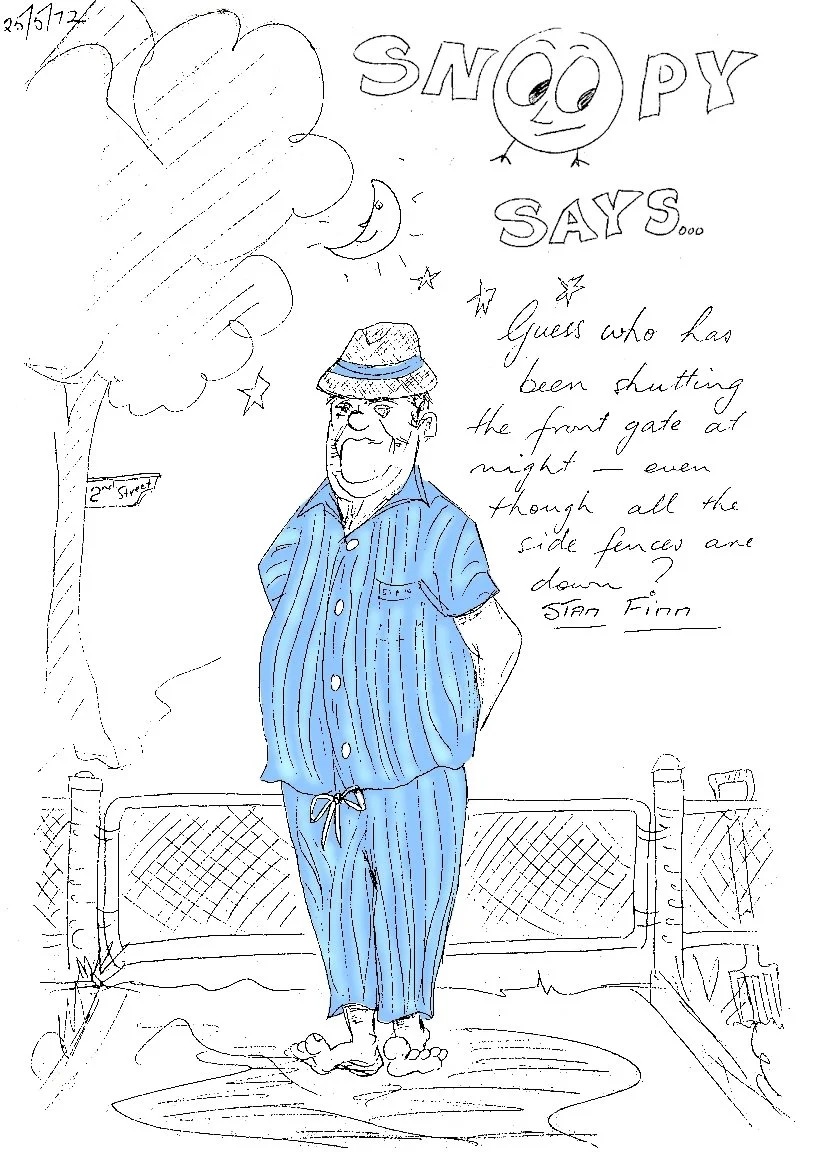 25/5/72
SNOOPY
SAYS...
Guess who has
been shutting
the front gate at
night — even
though all the
side fences are
down?
STAN FINN
2nd Street